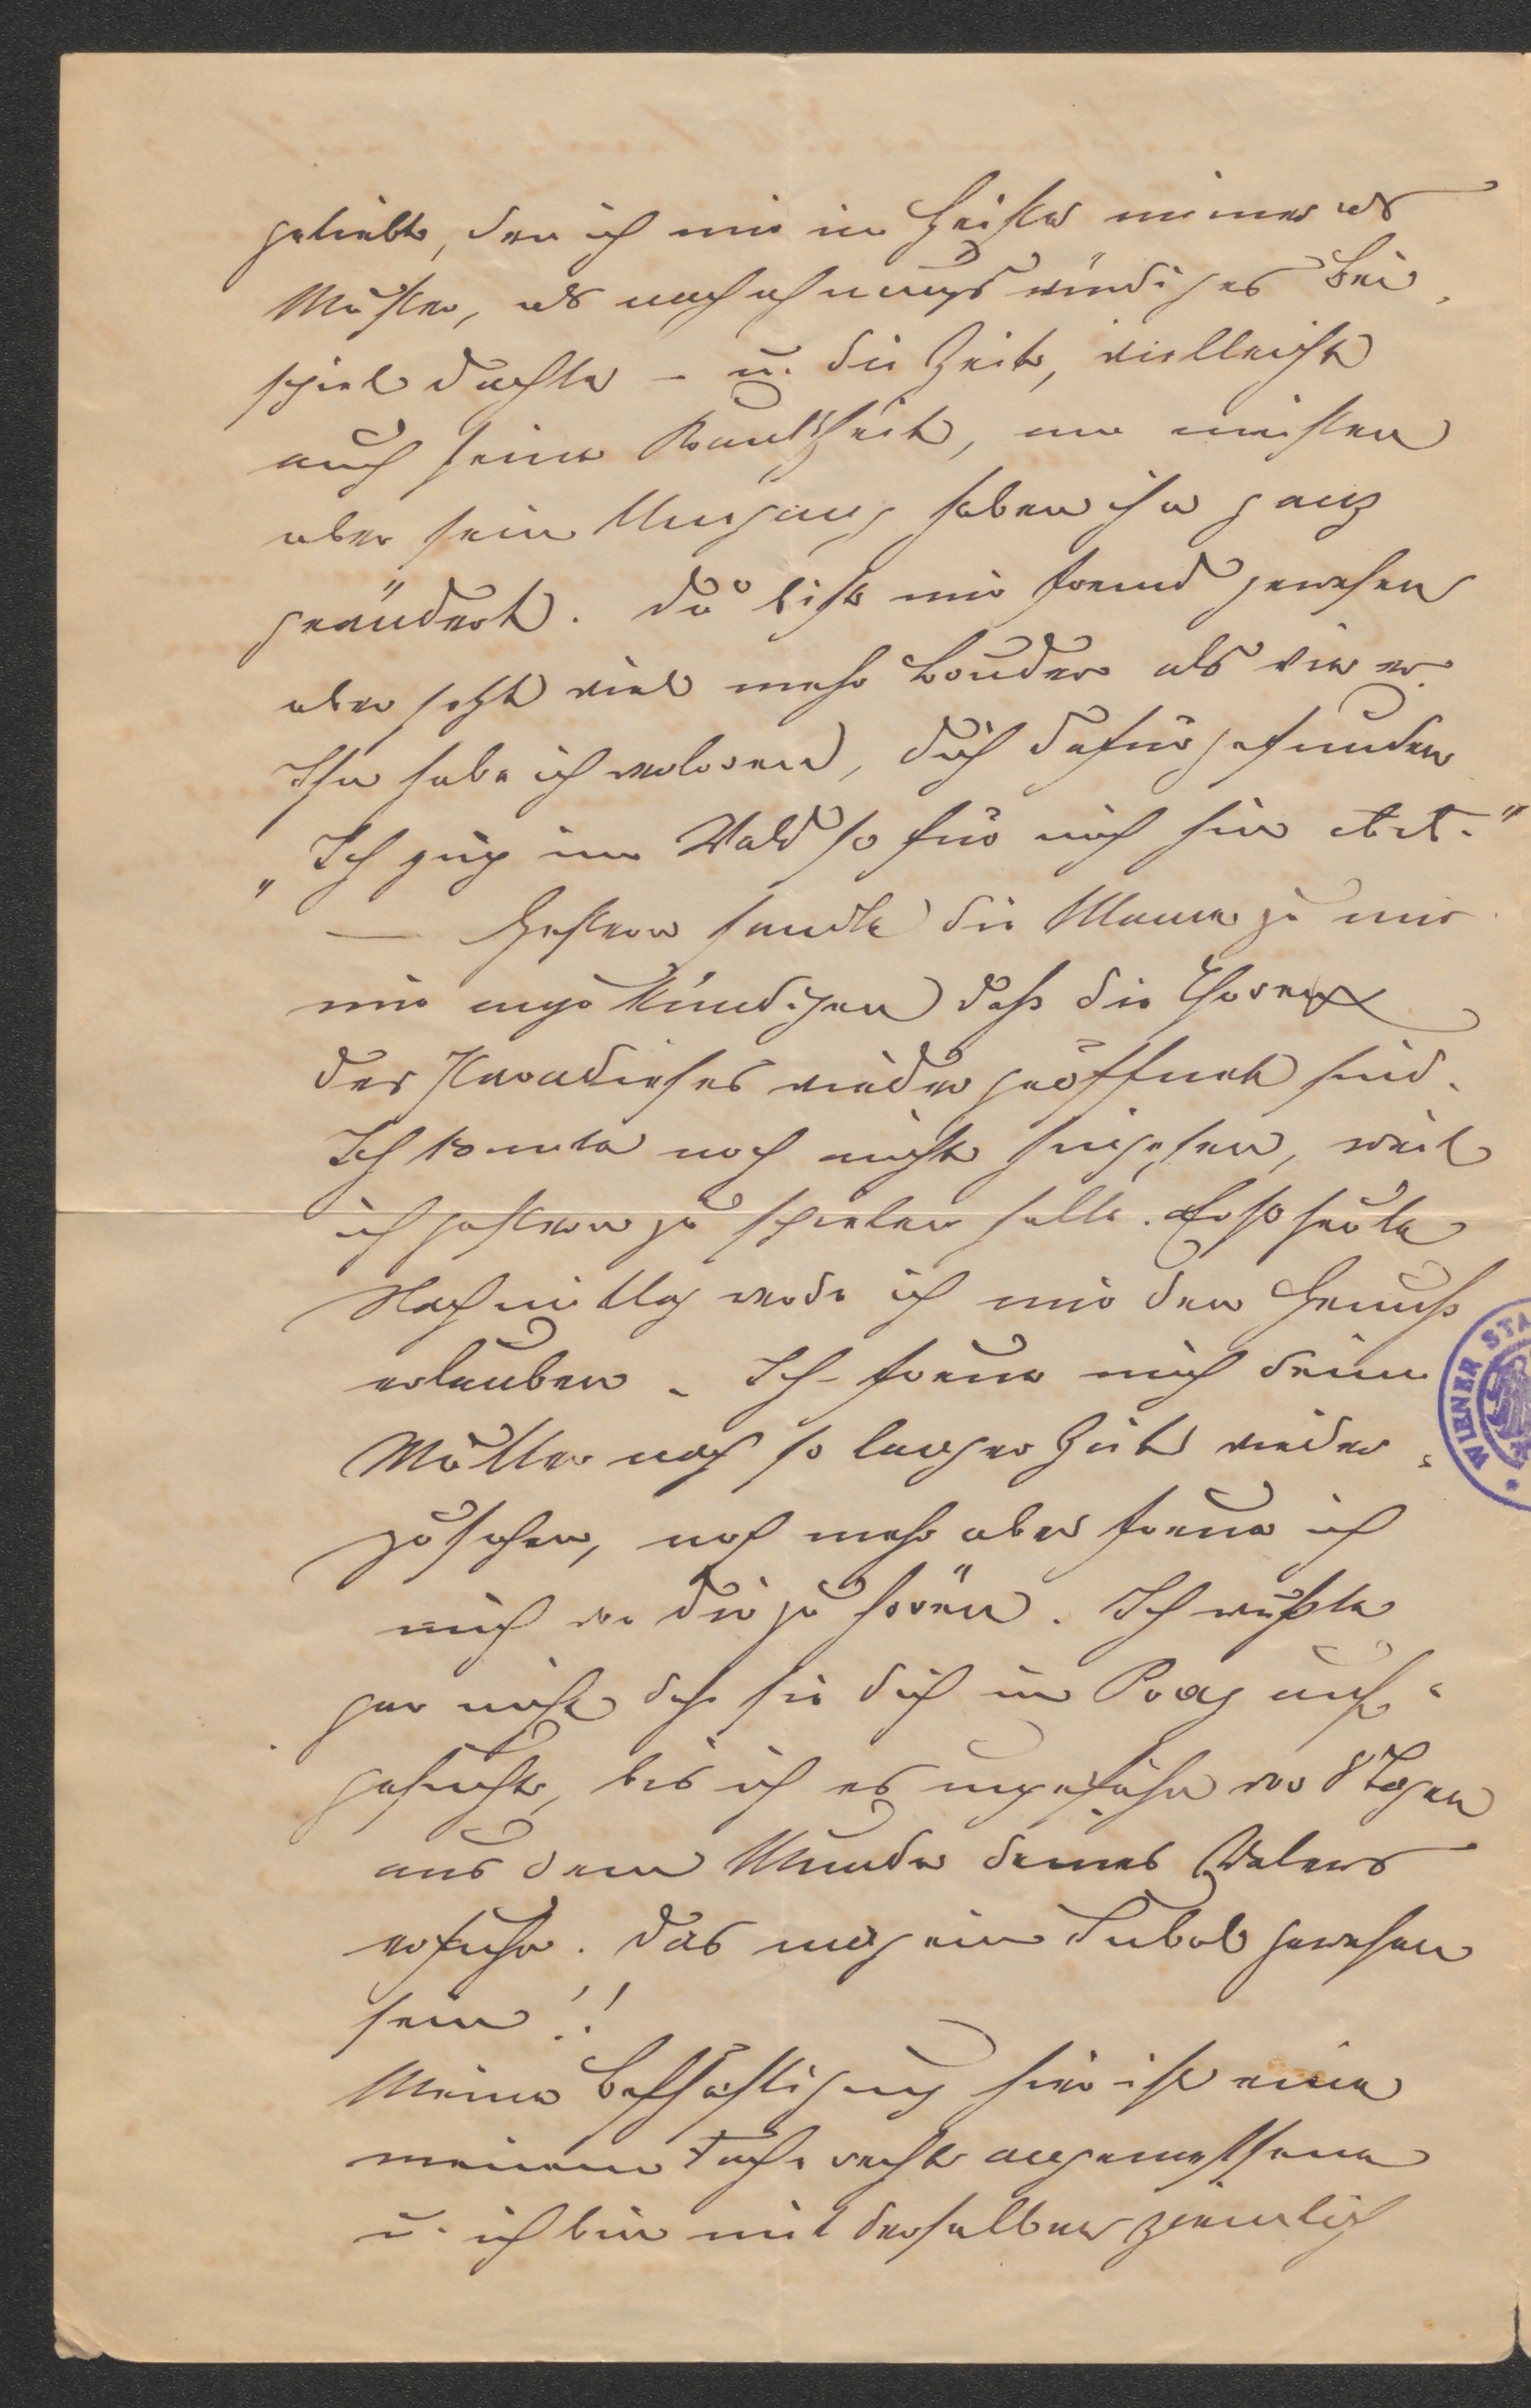 geliebt, den ich mir im Geiste immer als
Muster, als nachahmungswürdiges Bei¬
spiel dachte – u. die Zeit, vielleicht
auch seine Krankheit, am meisten
aber sein Umgang haben ihn ganz
geändert. Du bist mir fremd gewesen
aber jetzt viel mehr Bruder als wie er.
Ihn habe ich verloren, dich dafür gefunden
„Ich ging im Wald so für mich hin etct."
— Gestern sandte die Mama zu mir
mir anzukündigen daß die Thore
des Paradieses wieder geöffnet sind.
Ich konnte noch nicht hingehen, weil
ich gestern zu spielen hatte. Erst heute
Nachmittag werde ich mir den Genuß
erlauben. Ich freue mich deine
Mutter nach so langer Zeit wieder
zusehen, noch mehr aber freue ich
mich von dir zu hören. Ich wußte
gar nicht daß sie dich in Prag auf¬
gesucht, bis ich es ungefähr vor 8 Tagen
aus dem Munde deines Vaters
erfuhr. Das mag ein Jubel gewesen
sein!!
Meine Beschäftigung hier ist eine
meinem Fache recht angemessene
u. ich bin mit derselben ziemlich
WIENER STA